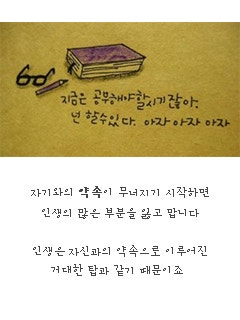 지금은 공부해야할시기잖아.
넌 할수있다. 아자 아자 아자
자기와의 약속이 무너지기 시작하면
인생의 많은 부분을 잃고 맙니다
인생은 자신과의 약속으로 이루어진
거대한 탑과 같기 때문이죠